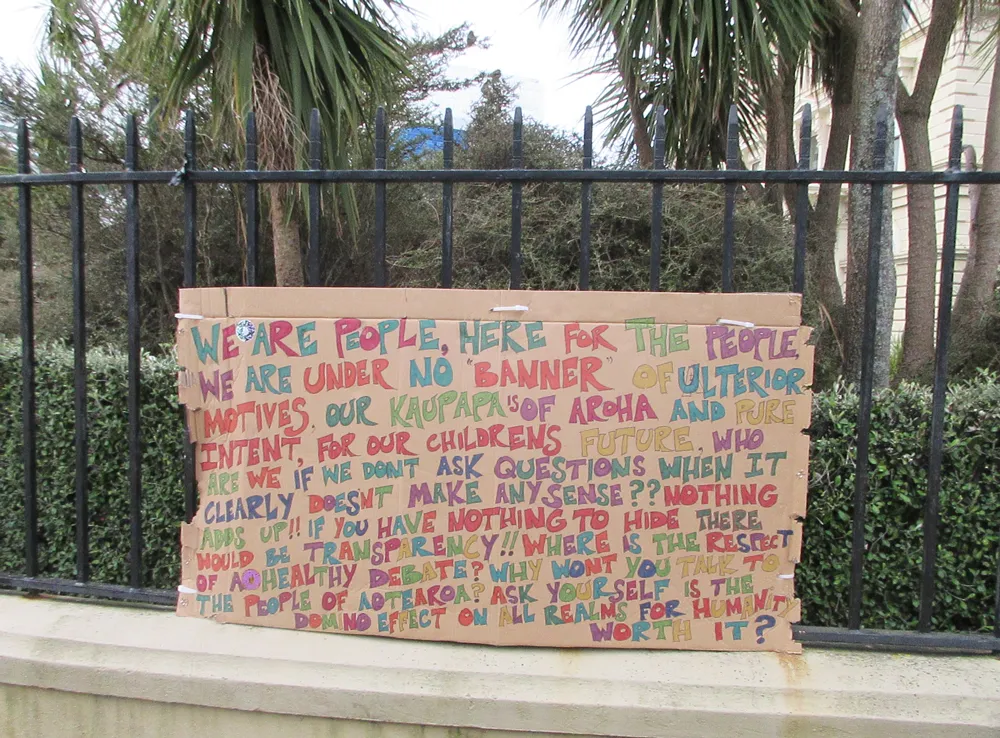 WE ARE PEOPLE, HERE FOR THE PEOPLE,
WE ARE UNDER NO "BANNER" OF ULTERIOR
MOTIVES. OUR KAUPAPA IS OF AROHA AND PURE
INTENT, FOR OUR CHILDRENS FUTURE. WHO
ARE WE IF WE DONT ASK QUESTIONS WHEN IT
CLEARLY DOESN'T MAKE ANY SENSE?? NOTHING
ADDS UP!! IF YOU HAVE NOTHING TO HIDE THERE
WOULD BE TRANSPARENCY!! WHERE IS THE RESPECT
OF A HEALTHY DEBATE? WHY WONT YOU TALK TO
THE PEOPLE OF AOTEAROA? ASK YOURSELF IS THE
DOMINO EFFECT ON ALL REALMS FOR HUMANITY
WORTH IT?